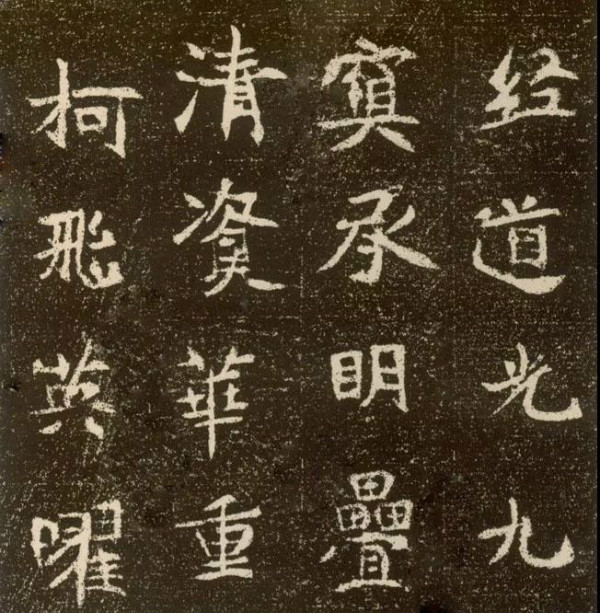 经道光九
承明疊
清資華重
柯飛英曜